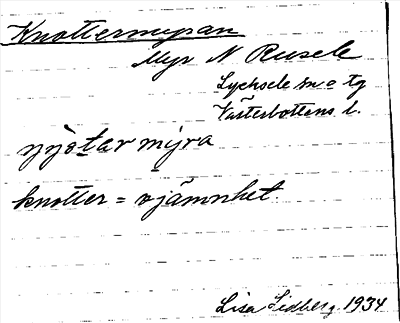 Knottermyran
Myr N Rusele
Lycksele sn o tg
Västerbottens l.
myra
knotter = ojämnhet.
Lisa Lidberg 1934